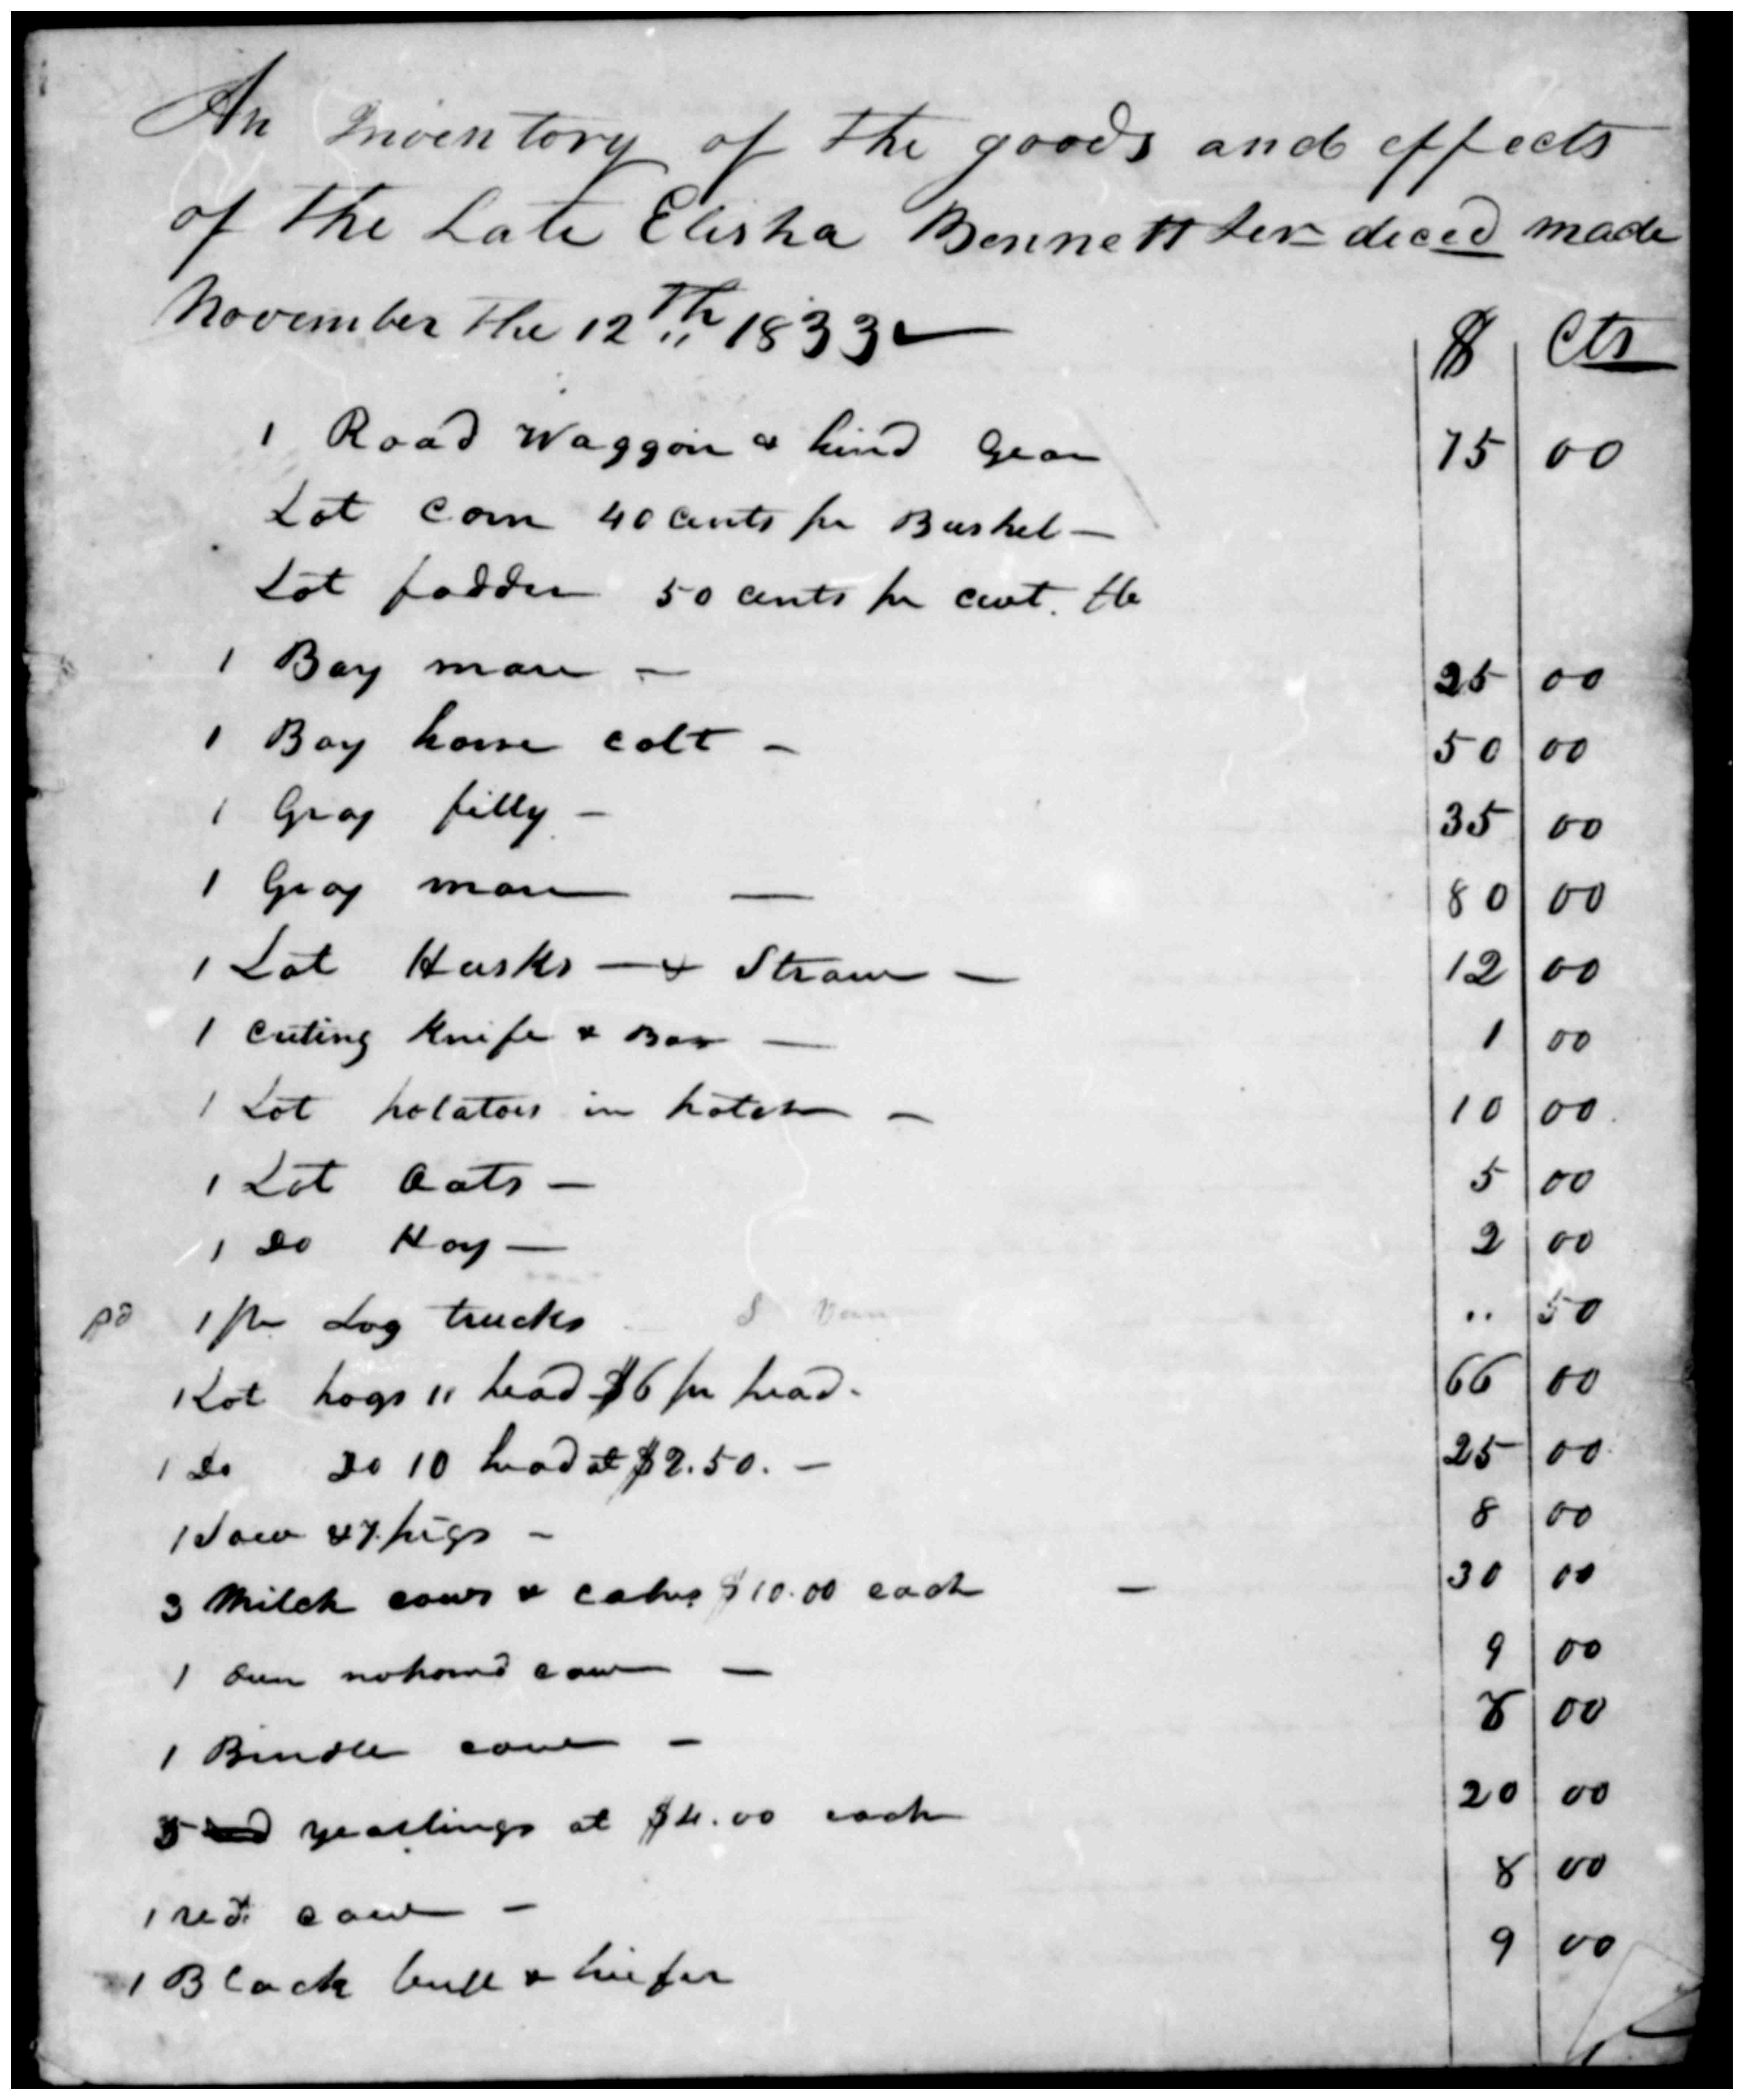 An Inventory of the goods and effects
of the Late Elisha Bennett Senr deced made
November the 12th 1833
$ Cts
1 Road Waggon & hind Gear 75 00
Lot corn 40 cents pr Bushel —
Lot fodder 50 cents pr cwt.
1 Bay mare — 25 00
1 Bay horse colt — 50 00
1 Gray filly — 35 00
1 Gray mare — 80 00
1 Lot Husks — & Straw — 12 00
1 Cuting knife & Box — 1 00
1 Lot potatoes in — 10 00
1 Lot Oats — 5 00
1 Do Hay — 2 00
pd 1 pr Log trucks .. 50
1 Lot hogs 11 head $6 pr head. 66 00
1 Do Do 10 head at $2.50. — 25 00
1 Sow & 7 pigs — 8 00
3 Milch cows & calves $10.00 each — 30 00
1 dun nohornd cow — 9 00
1 Brindle cow — 8 00
5 yearlings at $4.00 each 20 00
1 red cow — 8 00
1 Black bull & hiefer 9 00